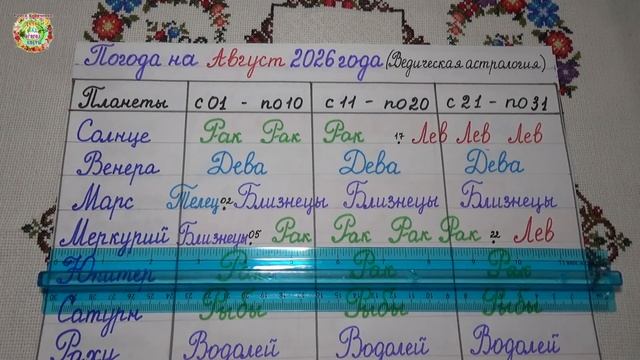 Погода на Август 2026 года (Ведическая астрология)
Планеты с 01 - по 10 с 11 - по 20 с 21 - по 31
Солнце Рак Рак Рак 17 Лев Лев Лев
Венера Дева Дева Дева
Марс Телец 02 Близнецы Близнецы Близнецы
Меркурий Близнецы 05 Рак Рак Рак Рак 22 Лев
Юпитер Рак Рак Рак
Сатурн Рыбы Рыбы Рыбы
Раху Водолей Водолей Водолей